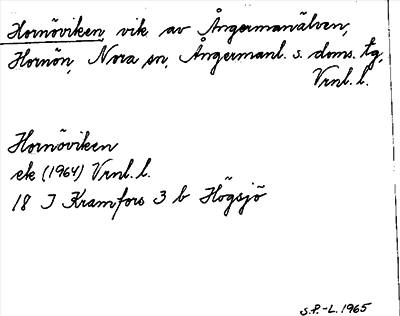 Hornöviken, vik av Ångermanälven,
Hornön, Nora sn, Ångermanl. s. doms. tg,
Vrnl. l.
Hornöviken
ek (1964) Vrnl. l.
18 J Kramfors 3 b Högsjö
S.P.-L. 1965